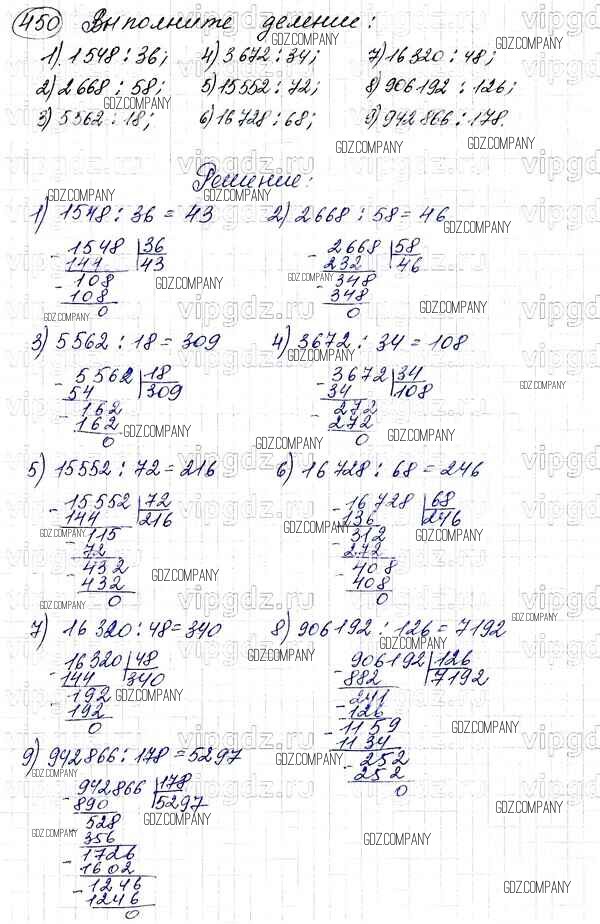 450 Выполните деление:
1) 1548 : 36; 4) 3672 : 34; 7) 16320 : 48;
2) 2668 : 58; 5) 15552 : 72; 8) 906192 : 126;
3) 5562 : 18; 6) 16728 : 68; 9) 942866 : 178.
Решение:
1) 1548 : 36 = 43 2) 2668 : 58 = 46
- 1548 36 - 2668 58
144 43 232 46
- 108 - 348
108 348
0 0
3) 5562 : 18 = 309 4) 3672 : 34 = 108
- 5562 18 - 3672 34
54 309 34 108
- 162 - 272
162 272
0 0
5) 15552 : 72 = 216 6) 16728 : 68 = 246
- 15552 72 - 16728 68
144 216 136 246
- 115 - 312
72 272
- 432 - 408
432 408
0 0
7) 16320 : 48 = 340 8) 906192 : 126 = 7192
- 16320 48 - 906192 126
144 340 882 7192
- 192 - 241
192 126
0 - 1159
1134
9) 942866 : 178 = 5297 - 252
- 942866 178 252
890 5297 0
- 528
356
- 1726
1602
- 1246
1246
0
GDZ.COMPANY
vipgdz.ru